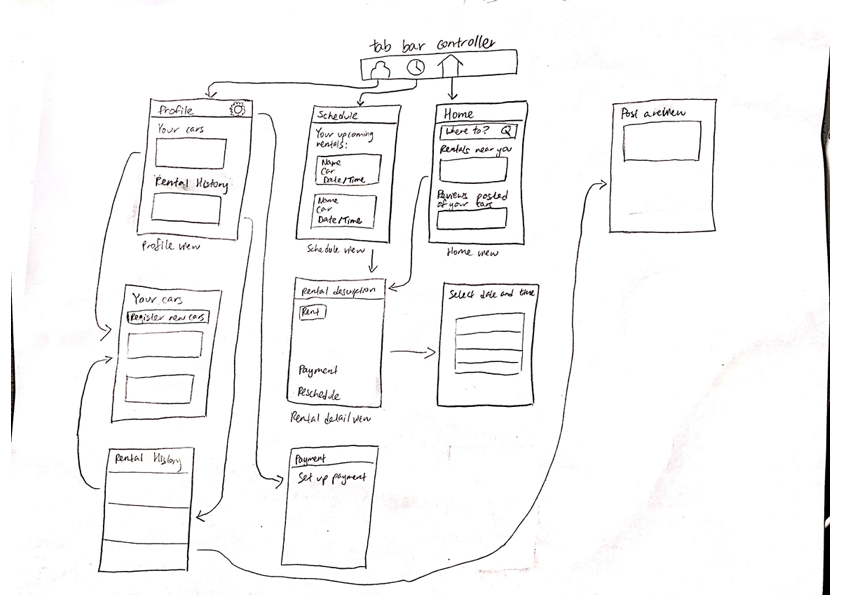 tab bar controller
Profile
Your cars
Rental History
Profile view
Schedule
Your upcoming
rentals:
Name
Car
Date/Time
Name
Car
Date/Time
Schedule view
Home
Where to?
Rentals near you
Reviews posted
of your cars
Home view
Post a review
Your cars
Register new cars
Rental description
Rent
Payment
Reschedule
Rental detail view
Select date and time
Rental History
Payment
Set up payment